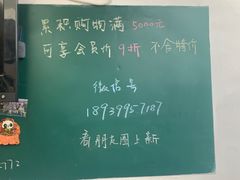 累积购物满5000元
可享会员价9折 不含特价
微信号
18939957187
看朋友圈上新